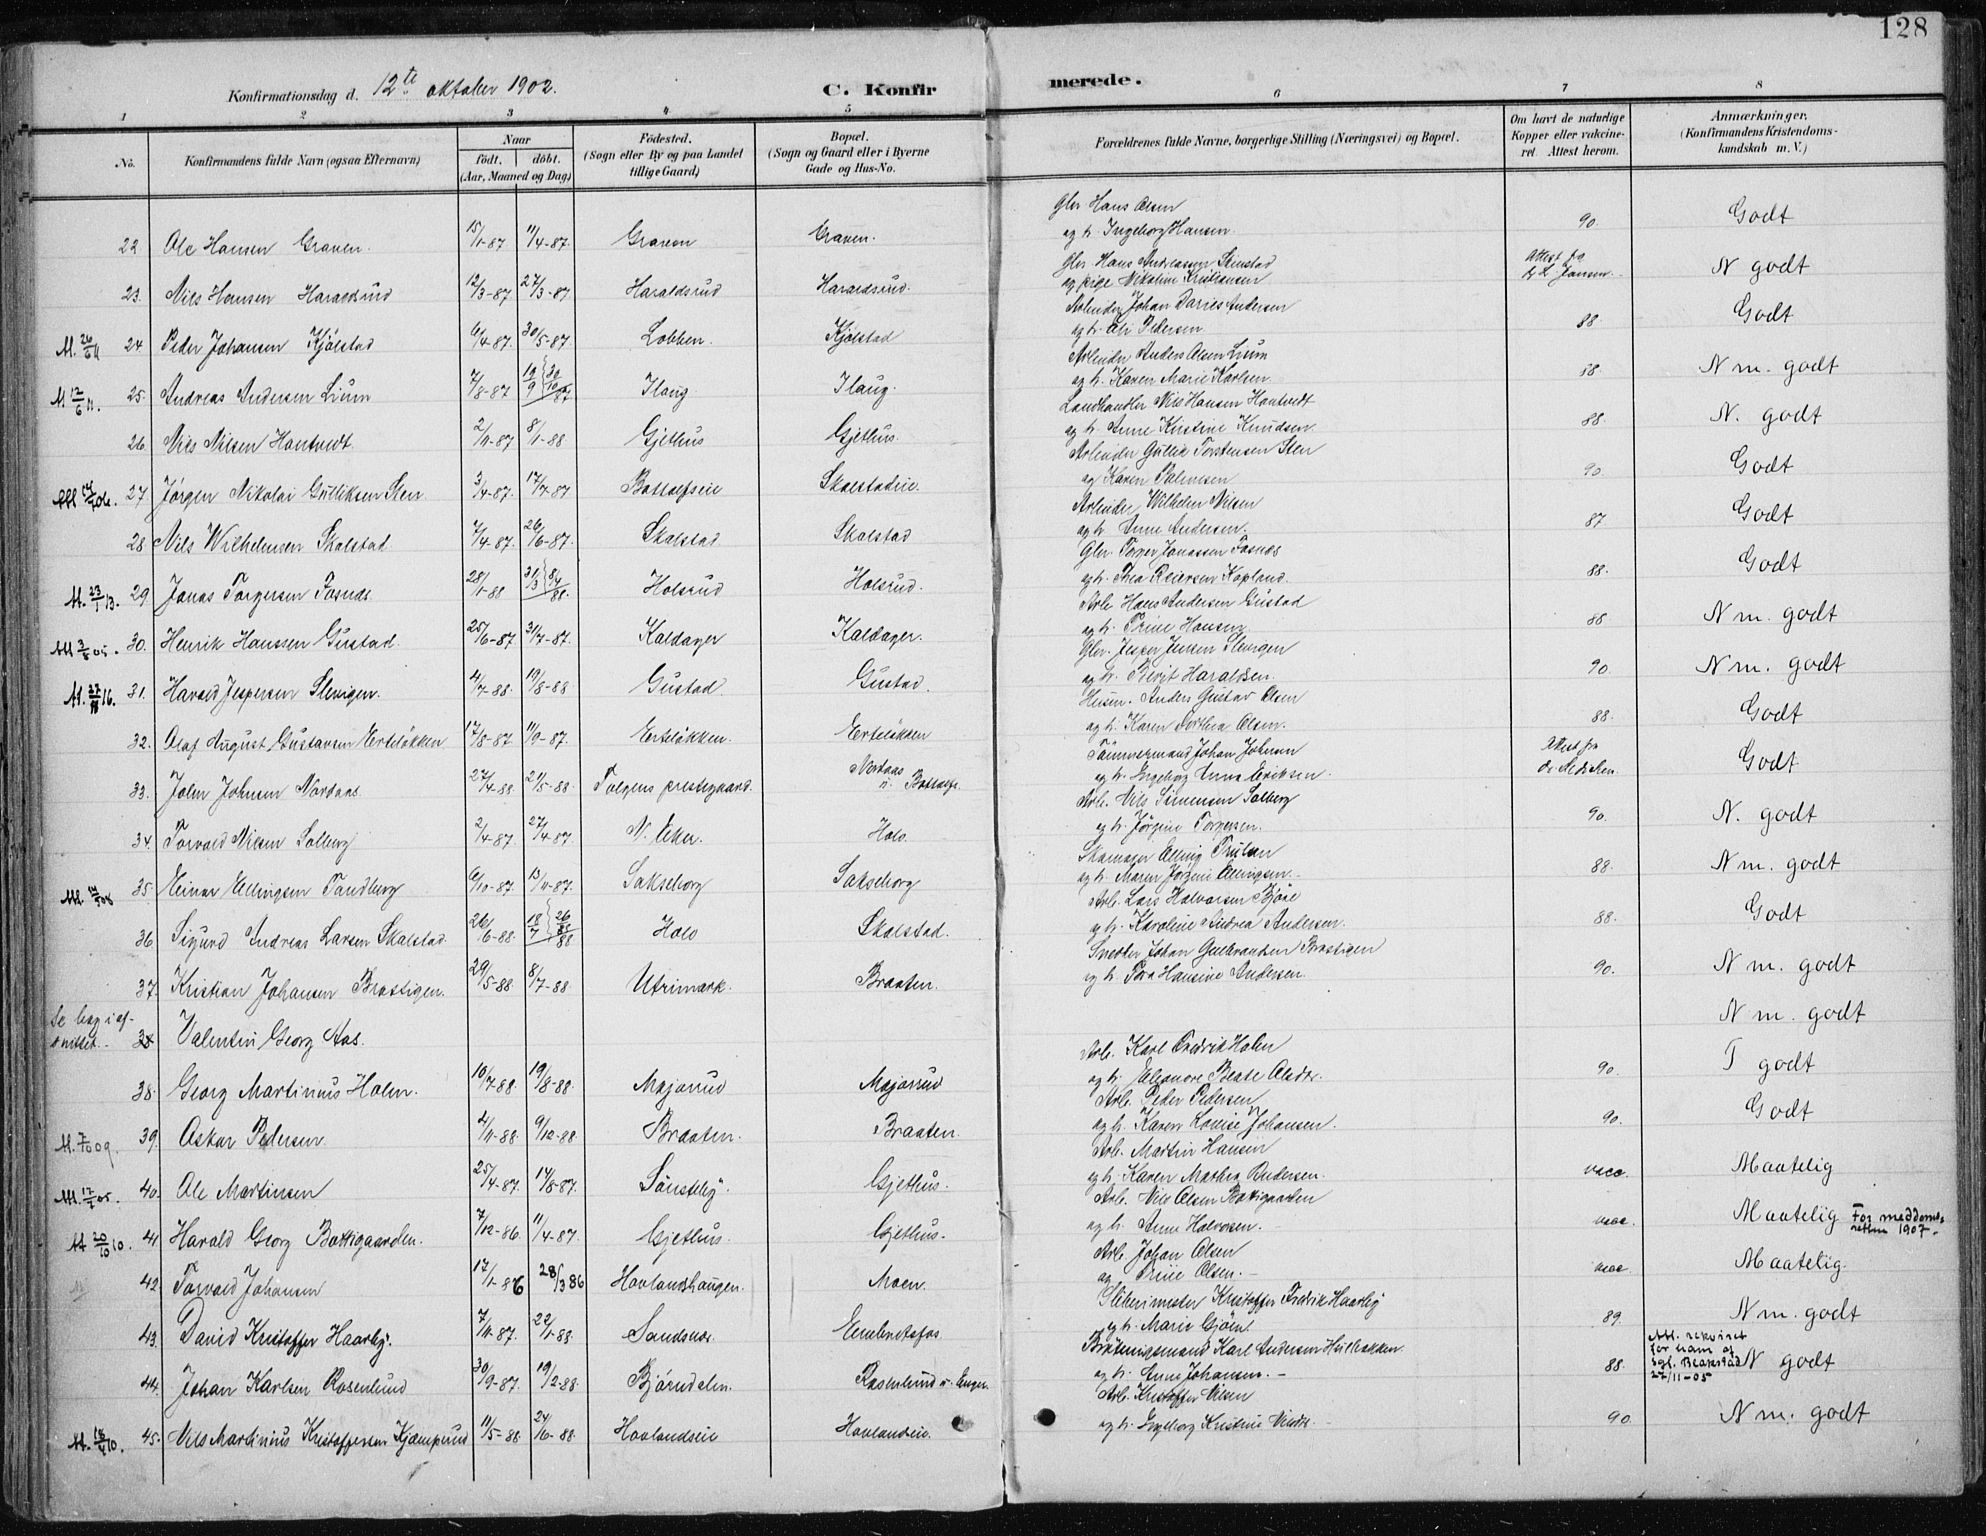 128
Konfirmationsdag d. 12te oktober 1902.
C. Konfirmerede.
1 2 3 4 5 6 7 8
No. Konfirmandens fulde Navn (ogsaa Efternavn) Naar født, døbt. (Aar, Maaned og Dag) Födested. (Sogn eller By og paa Landet tillige Gaard) Bopæl. (Sogn og Gaard eller i Byerne Gade og Hus-No. Forældrenes fulde Navne, borgerlige Stilling (Næringsvei) og Bopæl. Om havt de naturlige Kopper eller vakcineret. Attest herom. Anmærkninger. (Konfirmandens Kristendomskundskab m. V.)
22 Ole Hansen Graven. 15/1-87 11/4-87. Graven Graven. Gbr Hans Olsen og h. Ingeborg Hansen. 90. Godt
23. Nils Hansen Haraldsrud 12/3-87 27/3-87 Haraldsrud Haraldsrud. Gbr Hans Andreassen Stenstad og pige Nikoline Kristiansen Attest fra Jansen N godt
M. 24 Peder Johansen Kjölstad 6/4-87. 30/5-87 Lobben. Kjölstad Arbeider Johan Darius Andersen og h. Oli Pedersen 88. Godt
M 12/6 11. 25. Andreas Andersen Lium 7/8-87 Ilaug Ilaug. Arbeider Anders Olsen Lium og h. Karen Marie Karlsen 88. N m. godt
26. Nils Nilsen Hontvedt. 2/11-87 8/1-88 Gjethus Gjethus. Landhandler Nils Hansen Hontvedt og h. Anne Kirstine Knudsen 88. N. godt
27. Jørgen Nikolai Gulliksen Sten 3/4-87. 17/7-87 Bottolfseie Skalstadeie. Arbeider Gullik Torstensen Sten og Karen Palmesen 90. Godt
28. Nils Wilhelmsen Skalstad 7/4-87. 26/6-87. Skalstad Skalstad Arbeider Wilhelm Nilsen og h. Anne Andersen. 87 Godt
M. 23/1 13. 29 Jonas Torgersen Fosnæs 28/1-88 Holsrud Holsrud. Gbr. Torger Jonassen Fosnæs og h. Thea Reiersen Kopland. 88. Godt
M 3/8 05. 30. Henrik Hanssen Gustad. 25/6-87 31/7-87. Kaldager Kaldager. Arb. Hans Andersen Gustad og h. Trine Hansen 88 N m. godt
M. 27/ 16. 31. Harald Jespersen Slevigen. 4/7-88. 19/8-88 Gustad. Gustad. Gbr. Jesper Jensen Slevigen og h. Berit Haraldsen. 90. N m. godt
32. Olaf August Gustavsen Erteløkken 17/8-87 11/9-87. Erteløkken. Erteløkken Husm. Anders Gustav Olsen og h. Karen Dorthea Olsen. 88. Godt
33. John Johnsen Nordaas. 27/4-88. 21/5-88. Tolgens prestegaard. Nordaas u. Bottolfs. Tømmermand Johan Johnsen og h. Ingeborg Anna Eriksen. Attest fra Godt
34. Torvald Nilsen Solberg 2/4-87. 27/4-87. N. Eker. Holo. Arb. Nils Simensen Solberg og h. Jørgine Torgersen. 90. N. godt
35. Einar Ellingsen Tandberg 6/10-87. 13/11-87. Sakseborg Sakseborg Skomager Elling Trulsen og h. Maren Jørgine Ellingsen. 88 N m. godt
36 Sigurd Andreas Larsen Skalstad. 26/6-88. Holo Skalstad. Arb. Lars Halvorsen Bjøre og h. Karoline Andrea Andersen. 88. Godt
37. Kristian Johansen Brostigen. 29/5-88 8/7-88 Utrimark. Braaten. Snedker Johan Gulbrandsen Brostigen og h. Tora Hansine Andersen. 90. N m. godt
Se bag i afsnittet. 38 Valentin Georg Aas. N m. godt
38. Georg Martinius Holm. 10/7-88. 19/8-88. Majorrud Majorrud Arb. Karl Fredrik Holm og h. Eleonore Beate Olsdr. 90. T godt
M. 7/ 09. 39. Oskar Pedersen 4/11-88. 9/12-88 Braaten. Braaten. Arb. Peder Pedersen og h. Karen Louise Johansen. 90. Godt
M. 17/ 05. 40. Ole Martinsen 25/4-87. 14/8-87. Sönsteby. Gjethus. Arb. Martin Hansen og h. Karen Mathea Andersen. vacc. Maatelig
M 20/10 10. 41 Harald Georg Bakkegaarden. 7/12-86. 11/4-87. Gjethus. Gjethus. Arb. Nils Olsen Bakkegaarden og h. Anne Halvorsen. vacc. Maatelig For meddomsretten 1907.
42. Torvald Johansen 17/1-86 28/3 86 Hovlandshaugen. Moen. Arb. Johan Olsen og Trine Olsen. vacc. Maatelig.
43. David Kristoffer Haarby. 7/11-87. 22/1-88. Sandsnæs. Embretsfos Sliberimester Kristoffer Fredrik Haarby og h. Marie Gjöen. 89. N m. godt
44. Johan Karlsen Rosenlund 30/9-87. 19/2-88. Bjørndalen. Rosenlund u. Enger. Brøtningsmand Karl Andersen Hvilbakken og h. Anne Johansen. 88. Att. rekviret for ham af sgf. Beakstad 27/11-05 N godt
M. 10. 45. Nils Martinius Kristoffersen Kjæmperud 11/5-88. 24/6-88. Hovlandseie Hovlandseie. Arb. Kristoffer Nilsen og h. Ingeborg Kristine Nilsdtr. 90. N m. godt